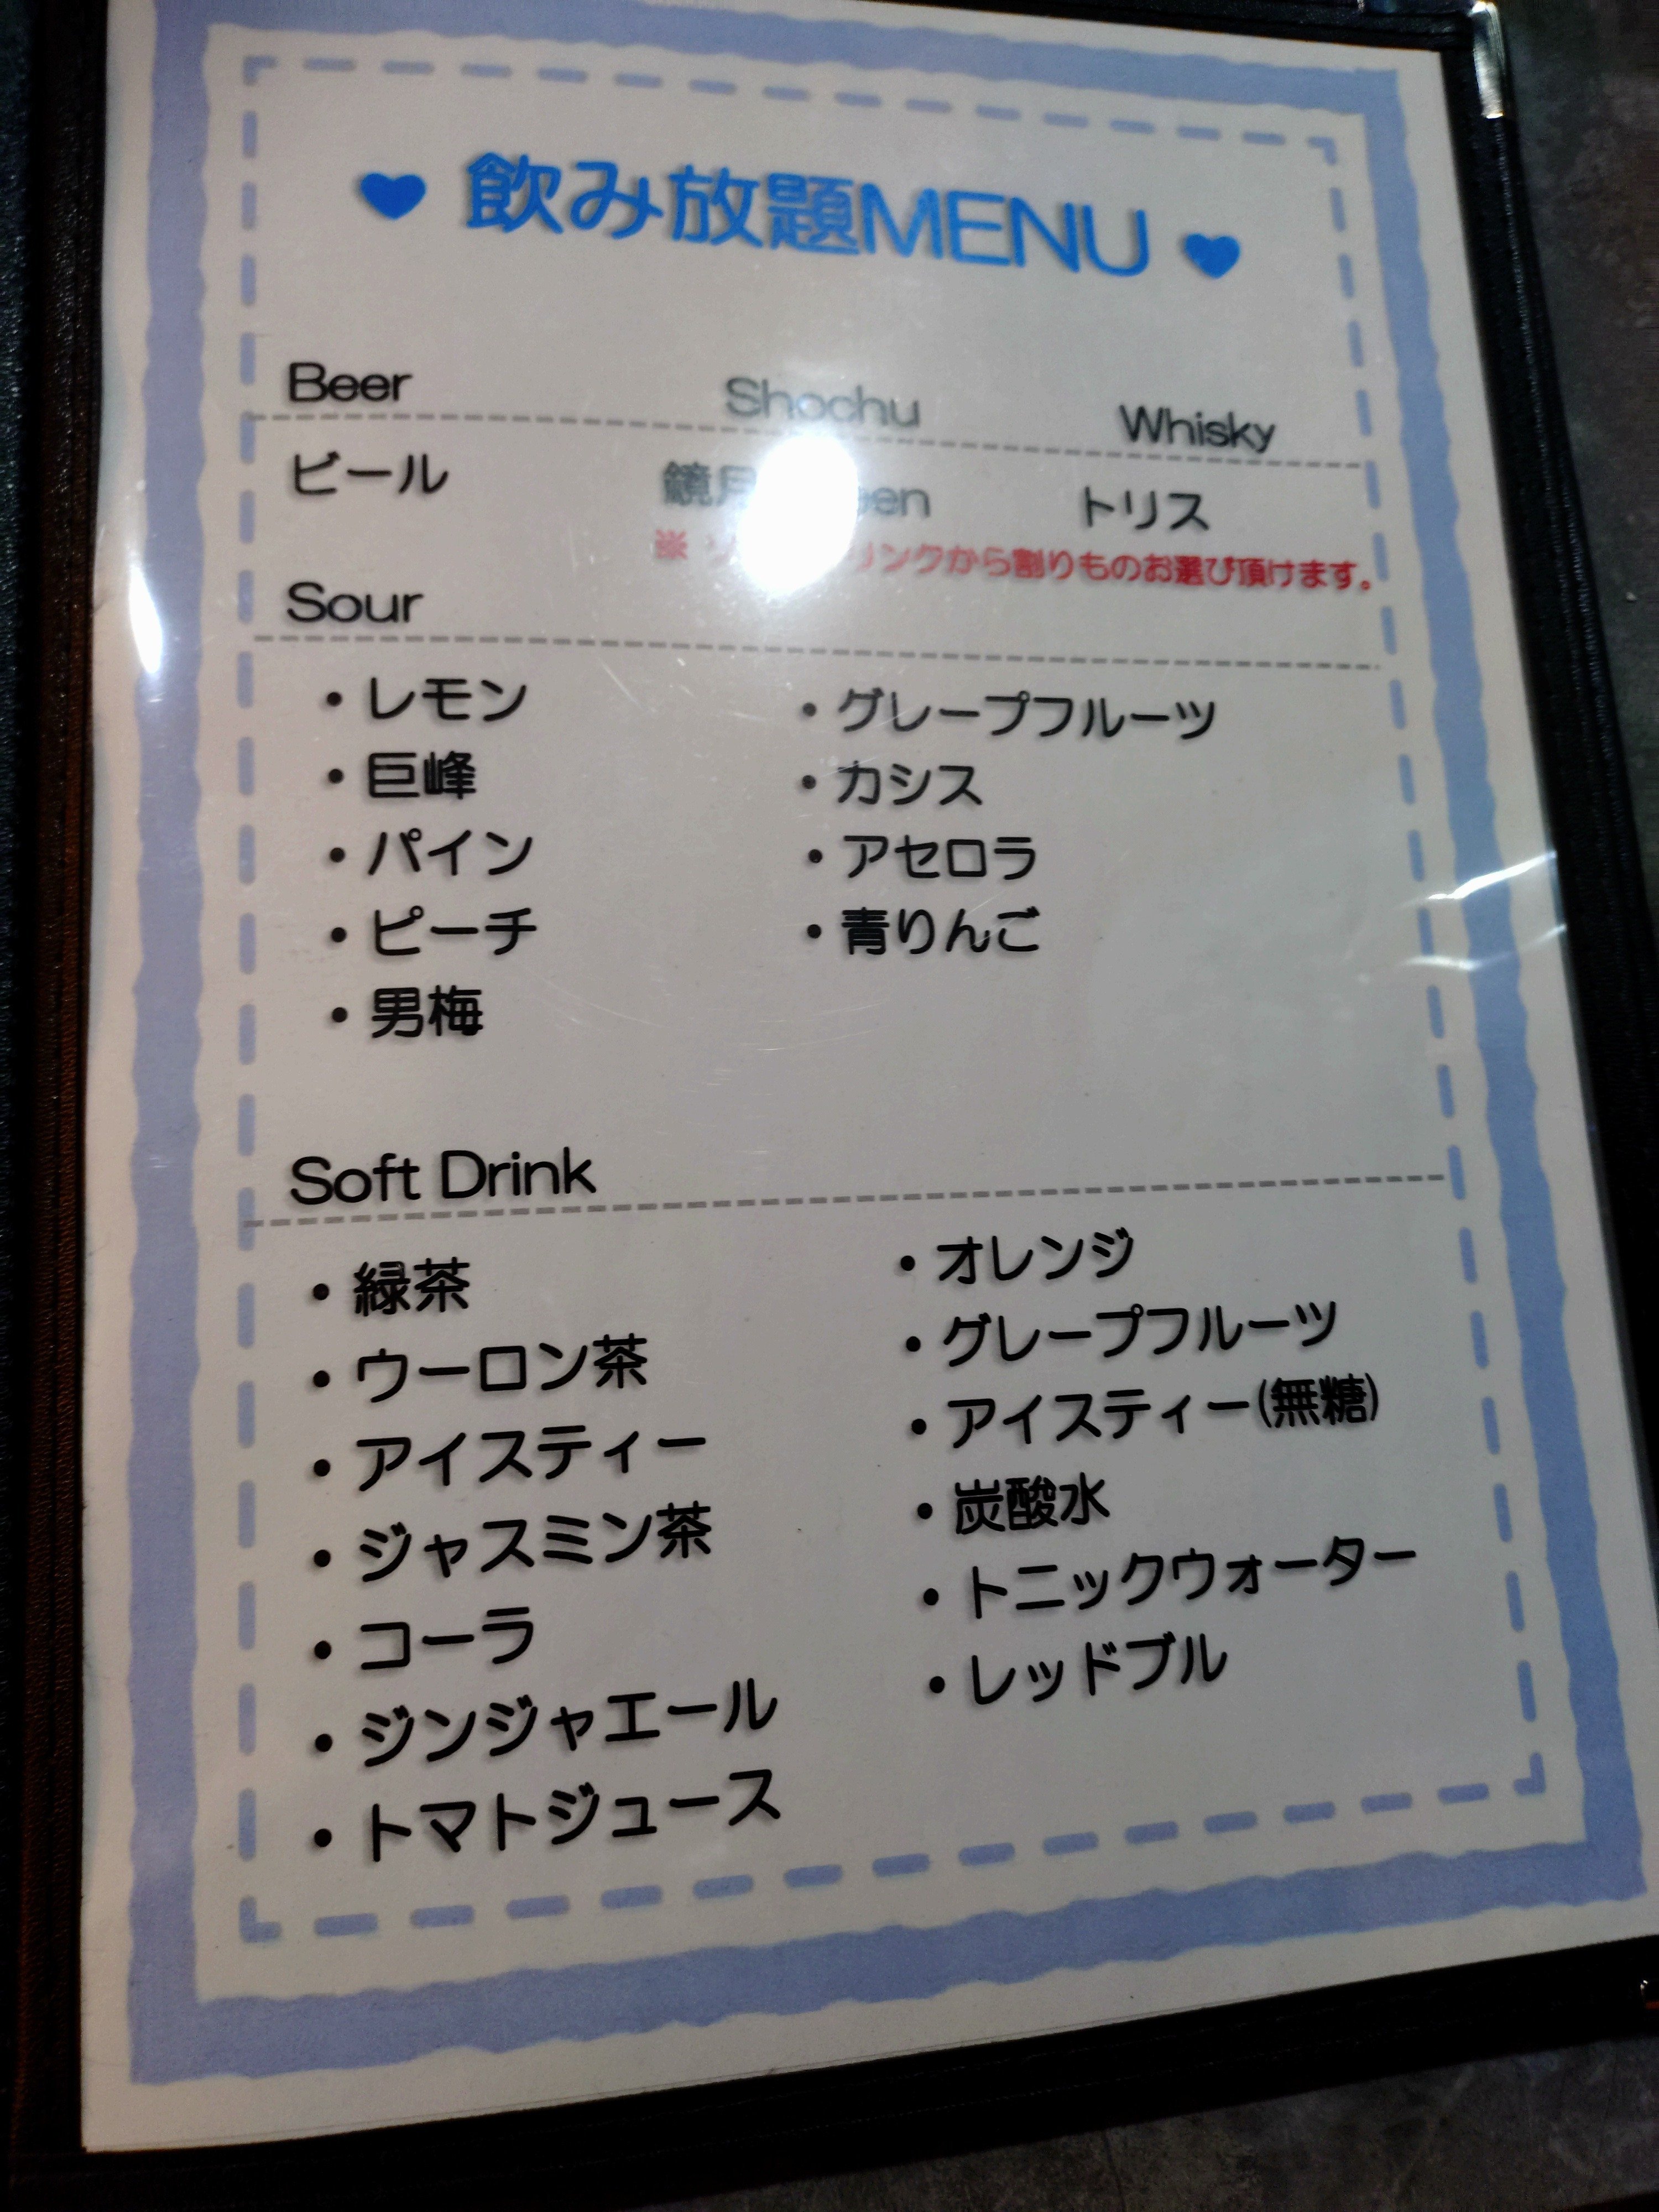 飲み放題MENU
Beer Shochu Whisky
ビール 鏡月 トリス
※ から割りものお選び頂けます。
Sour
・レモン ・グレープフルーツ
・巨峰 ・カシス
・パイン ・アセロラ
・ピーチ ・青りんご
・男梅
Soft Drink
・緑茶 ・オレンジ
・ウーロン茶 ・グレープフルーツ
・アイスティー ・アイスティー(無糖)
・ジャスミン茶 ・炭酸水
・コーラ ・トニックウォーター
・ジンジャエール ・レッドブル
・トマトジュース